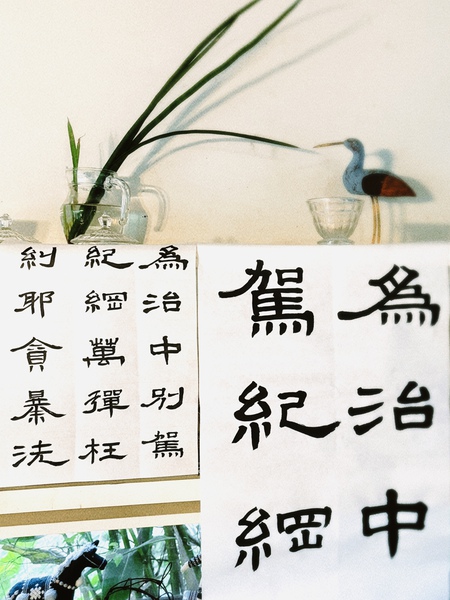 為治中
駕紀綱
為治中別駕
紀綱萬彈枉
糾耶貪暴洗